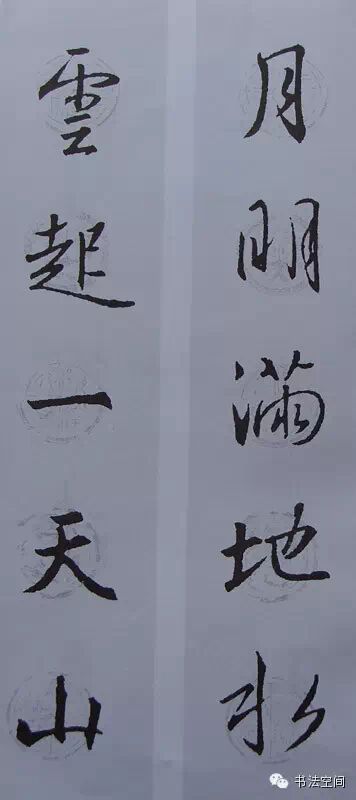 月明滿地水
雲起一天山
书法空间